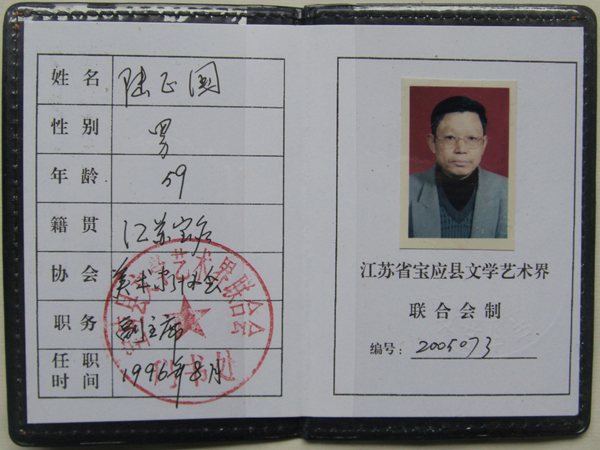 姓名 陆正国
性别 男
年龄 59
籍贯 江苏宝应
协会 美术家协会
职务 副主席
任职时间 1996年8月
江苏省宝应县文学艺术界
联合会制
编号: 2005073